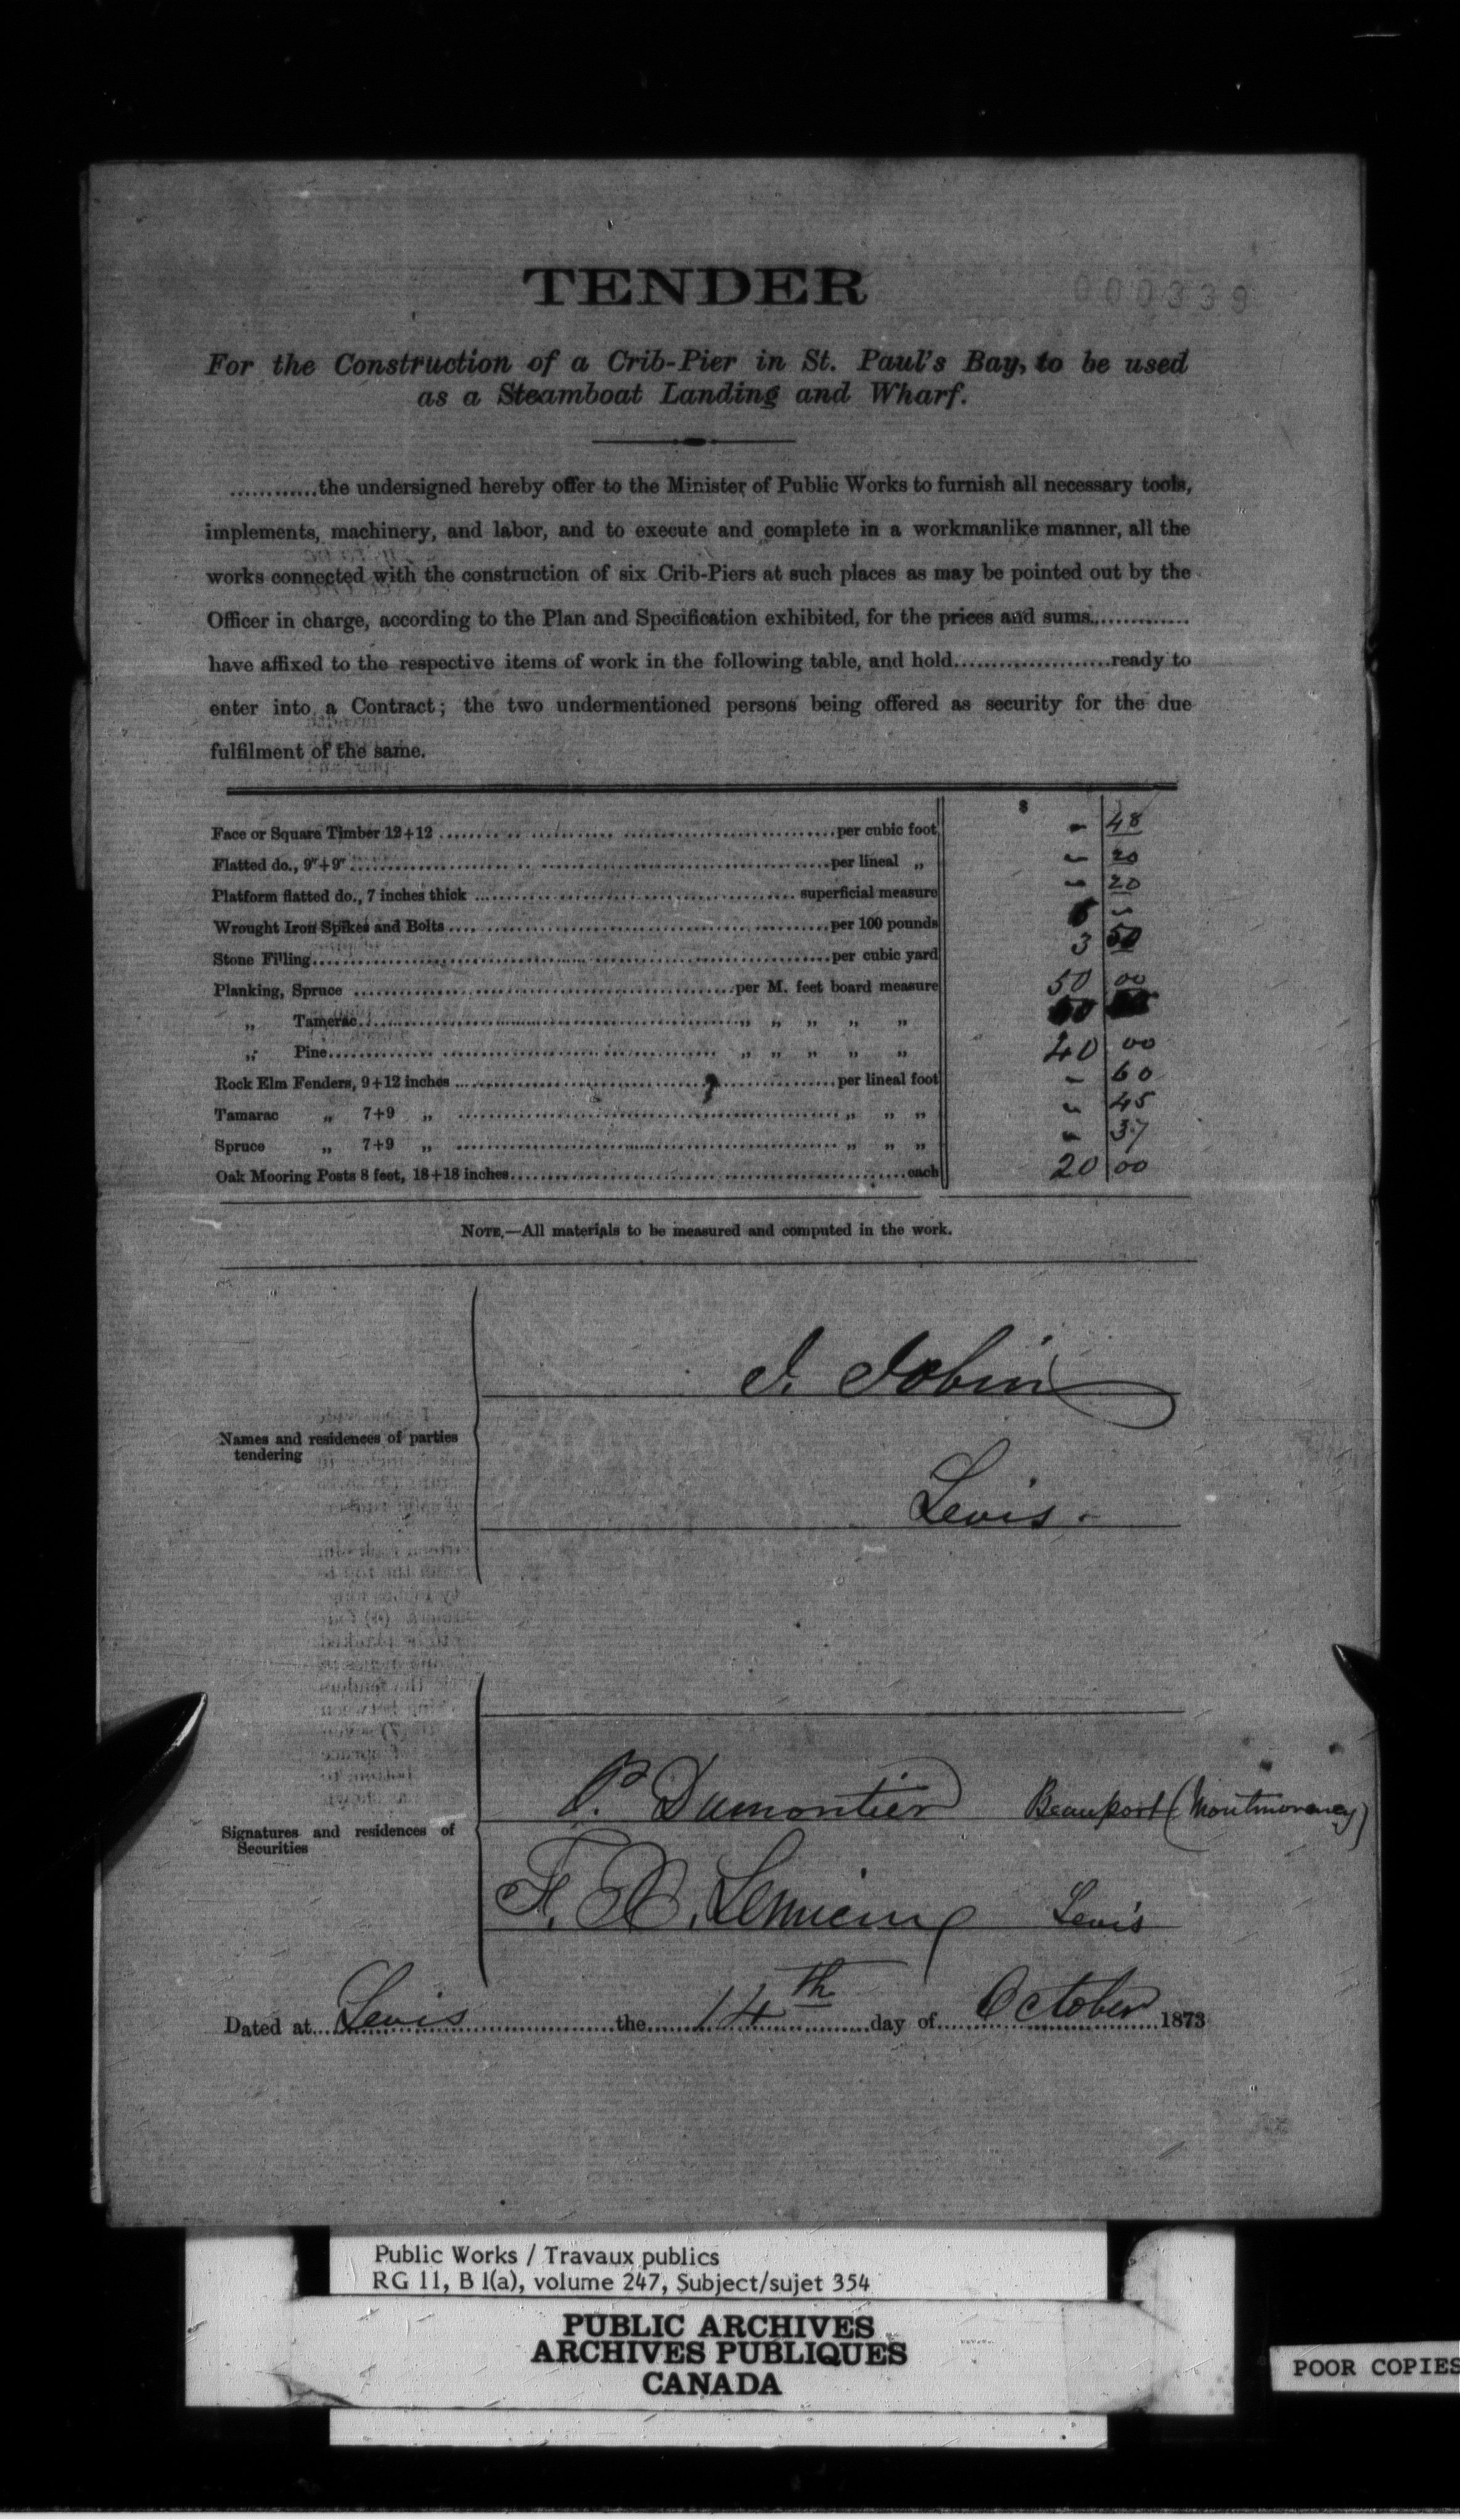 TENDER
000339
For the Construction of a Crib-Pier in St. Paul's Bay, to be used
as a Steamboat Landing and Wharf.
............the undersigned hereby offer to the Minister of Public Works to furnish all necessary tools,
implements, machinery, and labor, and to execute and complete in a workmanlike manner, all the
works connected with the construction of six Crib-Piers at such places as may be pointed out by the
Officer in charge, according to the Plan and Specification exhibited, for the prices and sums..............
have affixed to the respective items of work in the following table, and hold......................ready to
enter into a Contract; the two undermentioned persons being offered as security for the due
fulfilment of the same.
$
Face or Square Timber 12+12 ........ per cubic foot - 48
Flatted do., 9"+9" ........ per lineal „ - 20
Platform flatted do., 7 inches thick ........ superficial measure - 20
Wrought Iron Spikes and Bolts ........ per 100 pounds -
Stone Filling ........ per cubic yard 3 50
Planking, Spruce ........ per M. feet board measure 50 00
„ Tamerac ........ „ „ „ „ „
„ Pine ........ „ „ „ „ „ 40 00
Rock Elm Fenders, 9+12 inches ........ per lineal foot - 60
Tamarac „ 7+9 „ ........ „ „ „ - 45
Spruce „ 7+9 „ ........ „ „ „ - 37
Oak Mooring Posts 8 feet, 18+18 inches ........ each 20 00
NOTE,—All materials to be measured and computed in the work.
J. Jobin
Names and residences of parties
tendering
Levis.
P. Dumontier Beauport (Montmorency)
Signatures and residences of
Securities
F. X. Lemieux Levis
Dated at Levis the 14th day of October 1873
Public Works / Travaux publics
RG 11, B 1(a), volume 247, Subject/sujet 354
PUBLIC ARCHIVES
ARCHIVES PUBLIQUES
CANADA
POOR COPIES